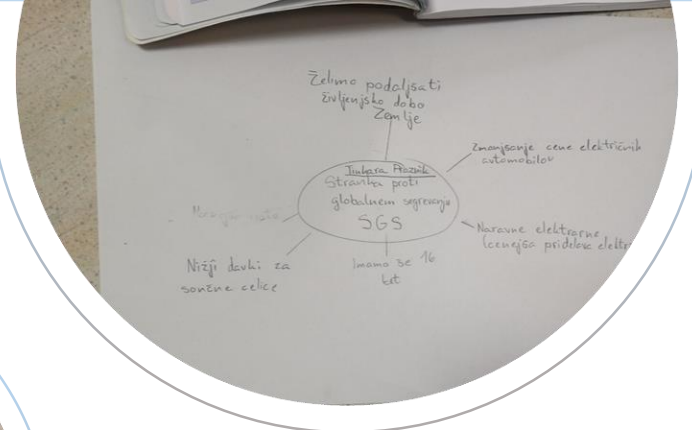 Želimo podaljšati
življenjsko dobo
Zemlje
Zmanjšanje cene električnih
avtomobilov
Stranka proti
globalnem segrevanju
SGS
Naravne elektrarne
(cenejša pridelava elektr
Nižji davki za
sončne celice
Imamo še 16
let